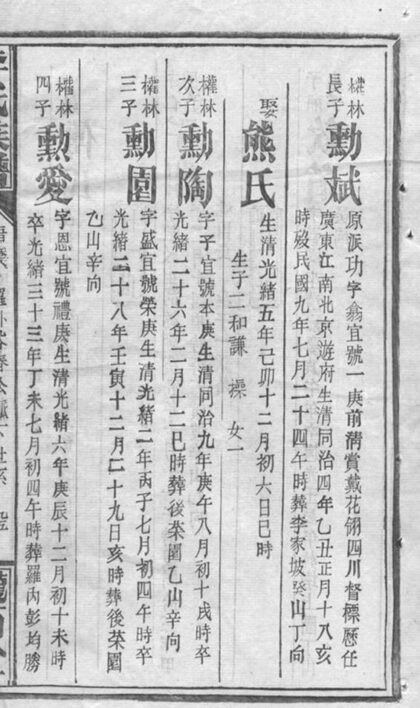 權林長子
勳斌
原派功字翁宜號一庚前清賞戴花翎四川督標歷任
廣東江南北京遊府生清同治四年乙丑正月十八亥
時歿民國九年七月二十四午時葬李家坡癸山丁向
娶
熊氏
生清光緒五年己卯十二月初六日巳時
生子二和謙 操 女一
權林次子
勳陶
字子宜號本庚生清同治九年庚午八月初十戌時卒
光緒二十六年二月十二巳時葬後菜園乙山辛向
權林三子
勳園
字盛宜號榮庚生清光緒二年丙子七月初四午時卒
光緒二十八年壬寅十二月二十九日亥時葬後菜園
乙山辛向
權林四子
勳愛
字恩宜號禮庚生清光緒六年庚辰十二月初十未時
卒光緒三十三年丁未七月初四午時葬羅丙彭均勝